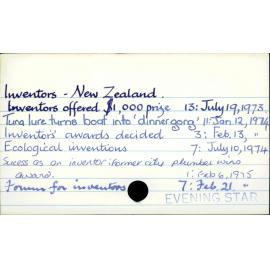 Inventors - New Zealand.
Inventors offered $1,000 prize 13: July 19, 1973
Tuna lure turns boat into 'dinner gong' 11: Jan. 12, 1974
Inventors' awards decided 3: Feb. 13, "
Ecological inventions 7: July 10, 1974
Sucess as an inventor: former city plumber wins
award. 1: Feb 6, 1975
Forum for inventors 7: Feb. 21 "
EVENING STAR